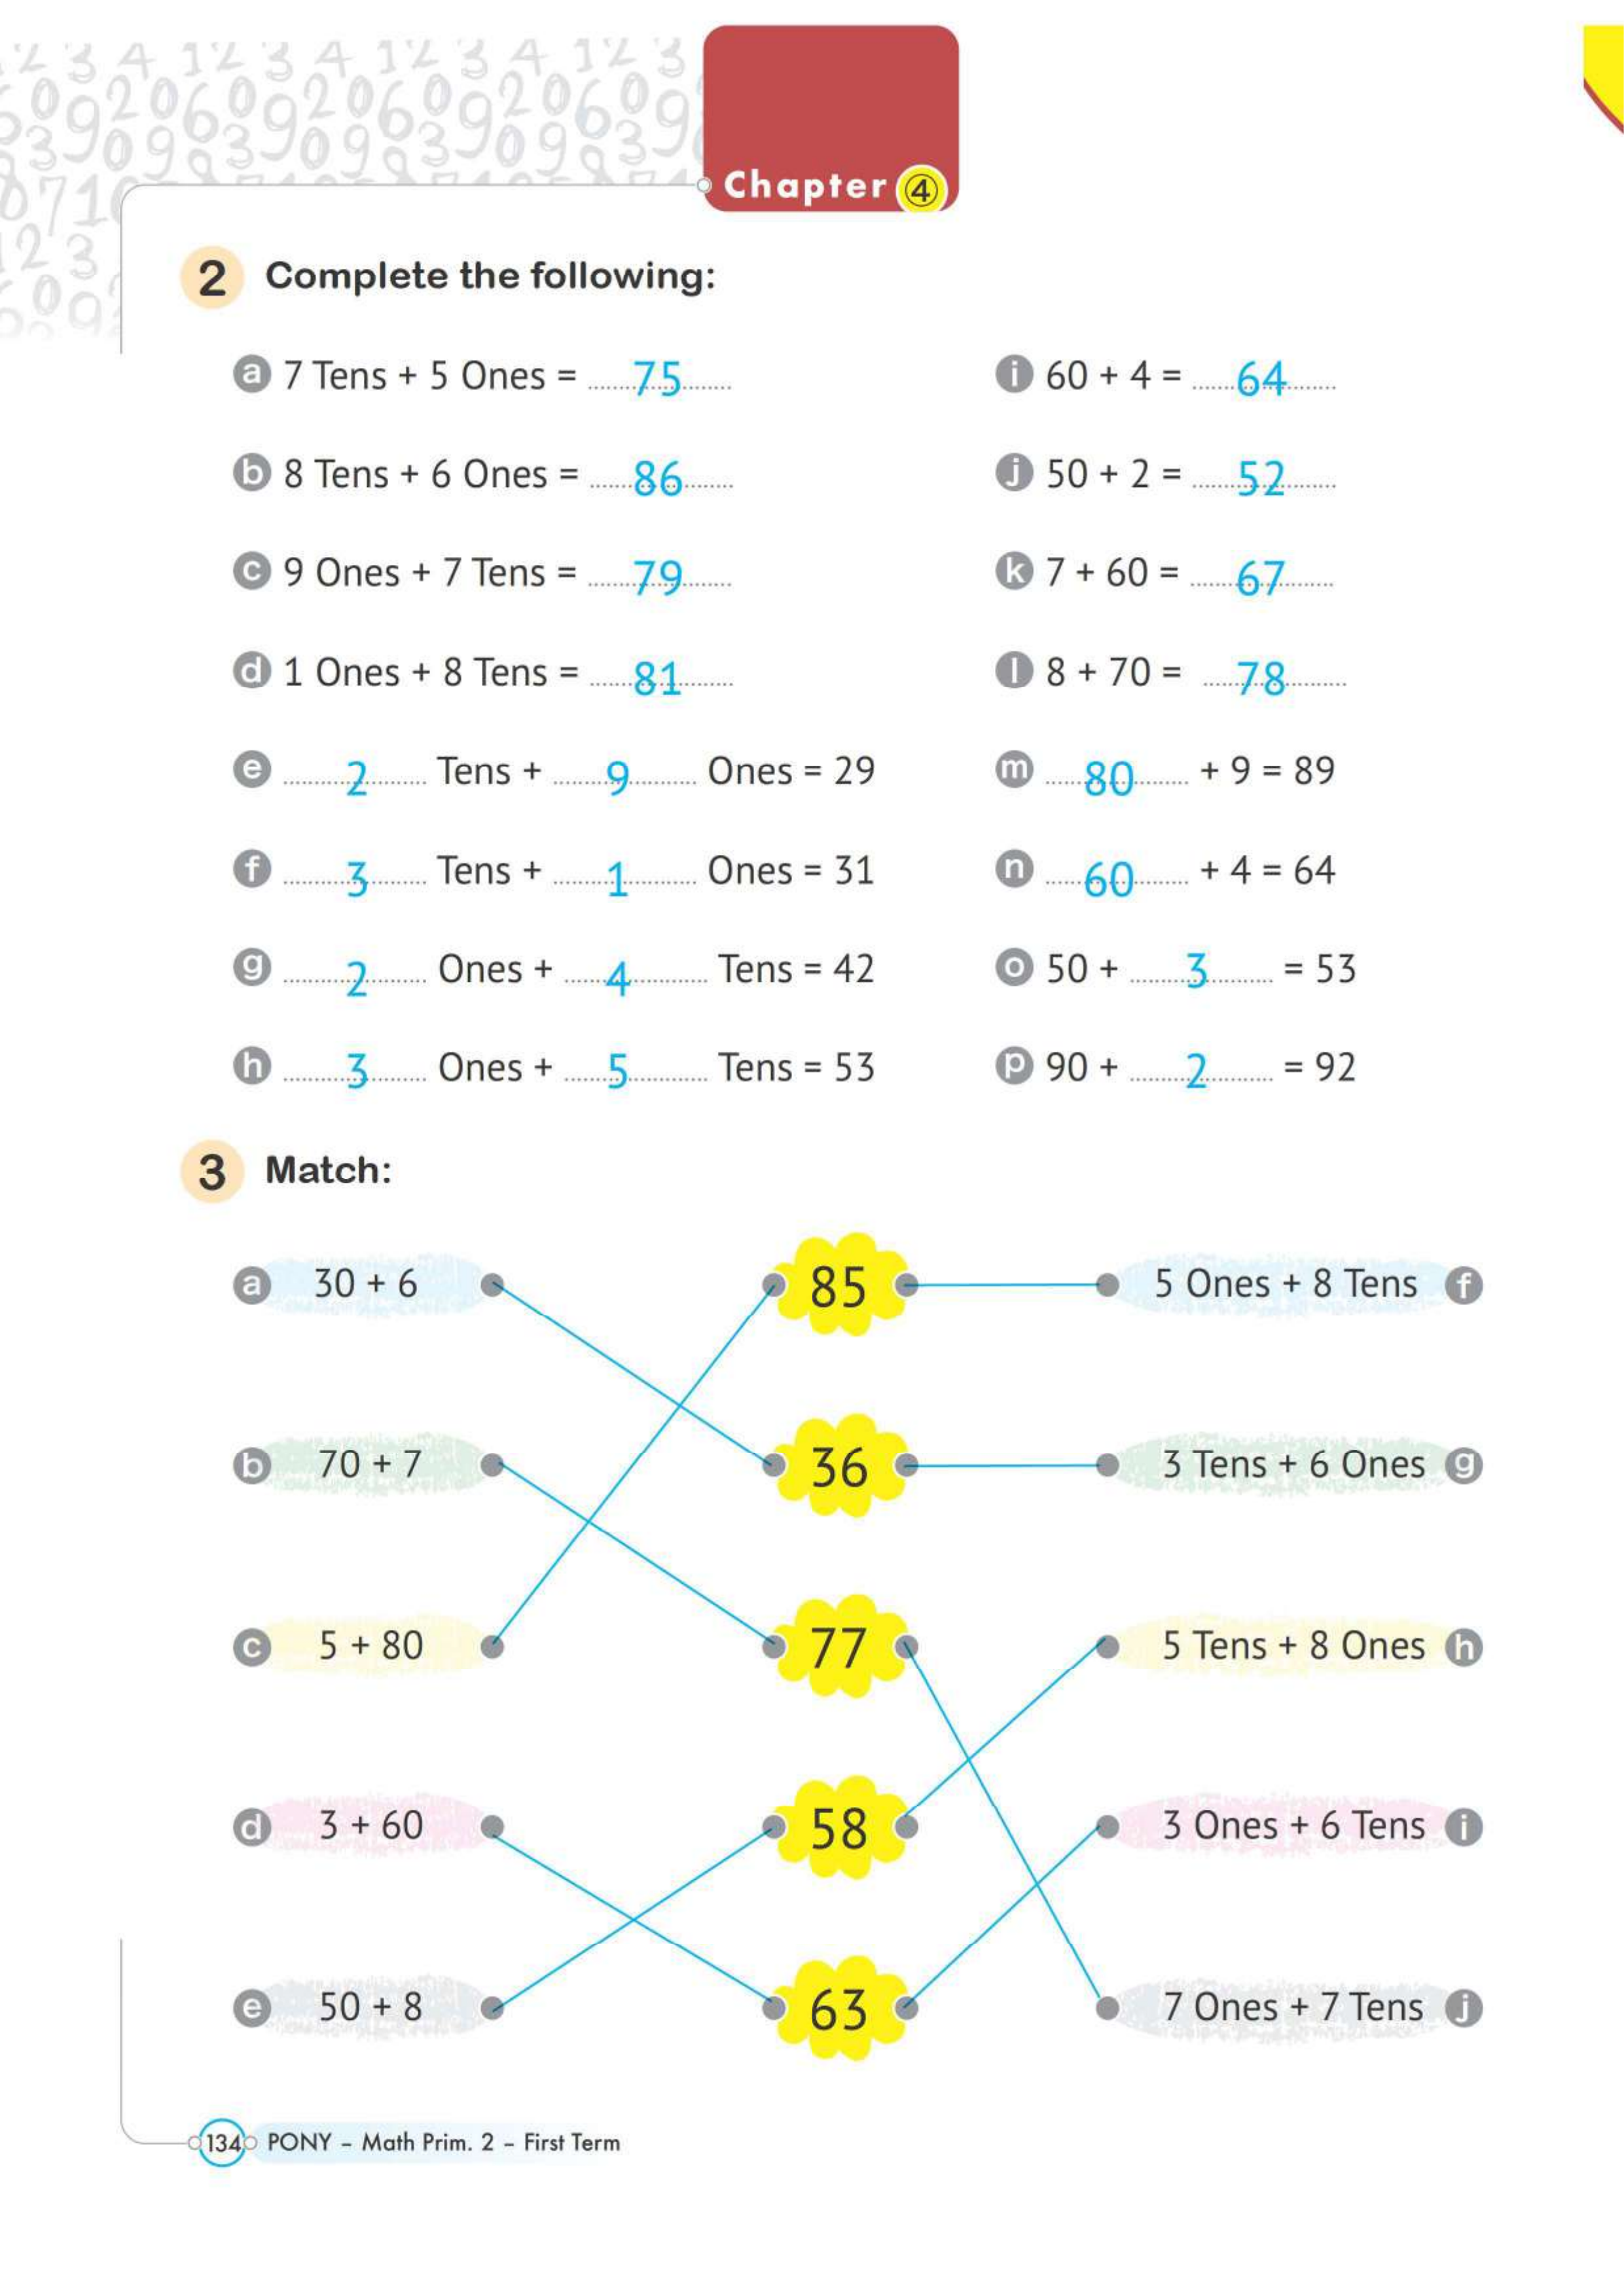 Chapter 4
2 Complete the following:
a 7 Tens + 5 Ones = 75
b 8 Tens + 6 Ones = 86
c 9 Ones + 7 Tens = 79
d 1 Ones + 8 Tens = 81
e 2 Tens + 9 Ones = 29
f 3 Tens + 1 Ones = 31
g 2 Ones + 4 Tens = 42
h 3 Ones + 5 Tens = 53
i 60 + 4 = 64
j 50 + 2 = 52
k 7 + 60 = 67
l 8 + 70 = 78
m 80 + 9 = 89
n 60 + 4 = 64
o 50 + 3 = 53
p 90 + 2 = 92
3 Match:
a 30 + 6 85 5 Ones + 8 Tens f
b 70 + 7 36 3 Tens + 6 Ones g
c 5 + 80 77 5 Tens + 8 Ones h
d 3 + 60 58 3 Ones + 6 Tens i
e 50 + 8 63 7 Ones + 7 Tens j
134 PONY - Math Prim. 2 - First Term